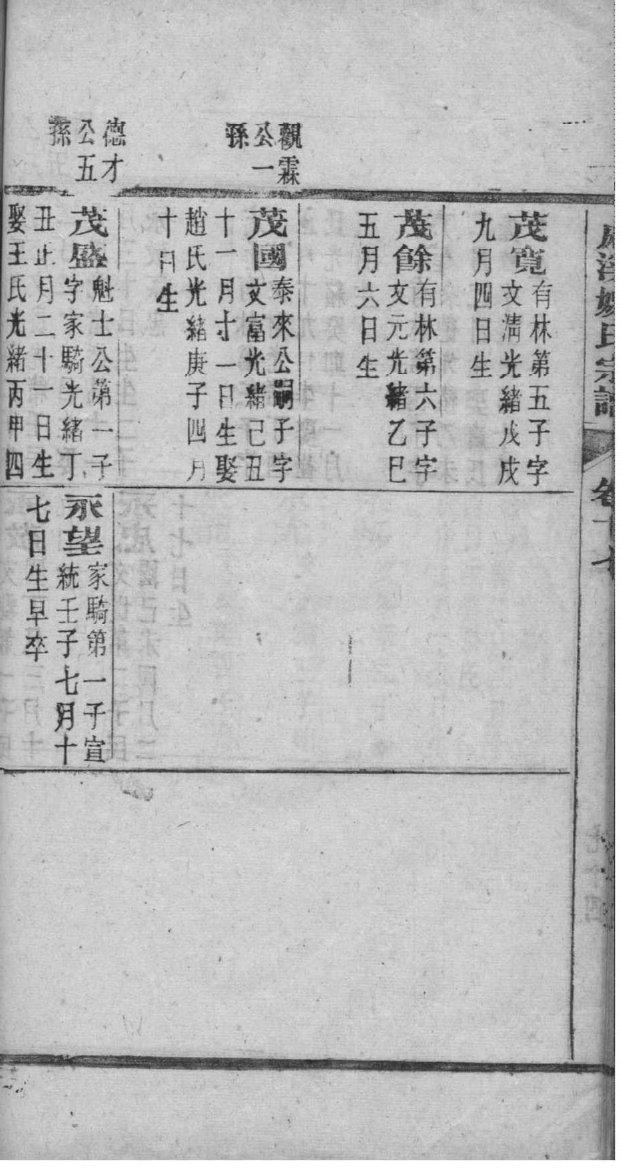 氏宗譜
卷十七
茂寬有林第五子字
文清光緒戊戌
九月四日生
茂餘有林第六子字
文元光緒乙巳
五月六日生
觀霖
公一
孫
茂國泰來公嗣子字
文富光緒己丑
十一月十一日生娶
趙氏光緒庚子四月
十日生
德才
公五
孫
茂盛魁士公第一子
字家騎光緒丁
丑正月二十一日生
娶王氏光緒丙申四
永望家騎第一子宣
統壬子七月十
七日生早卒